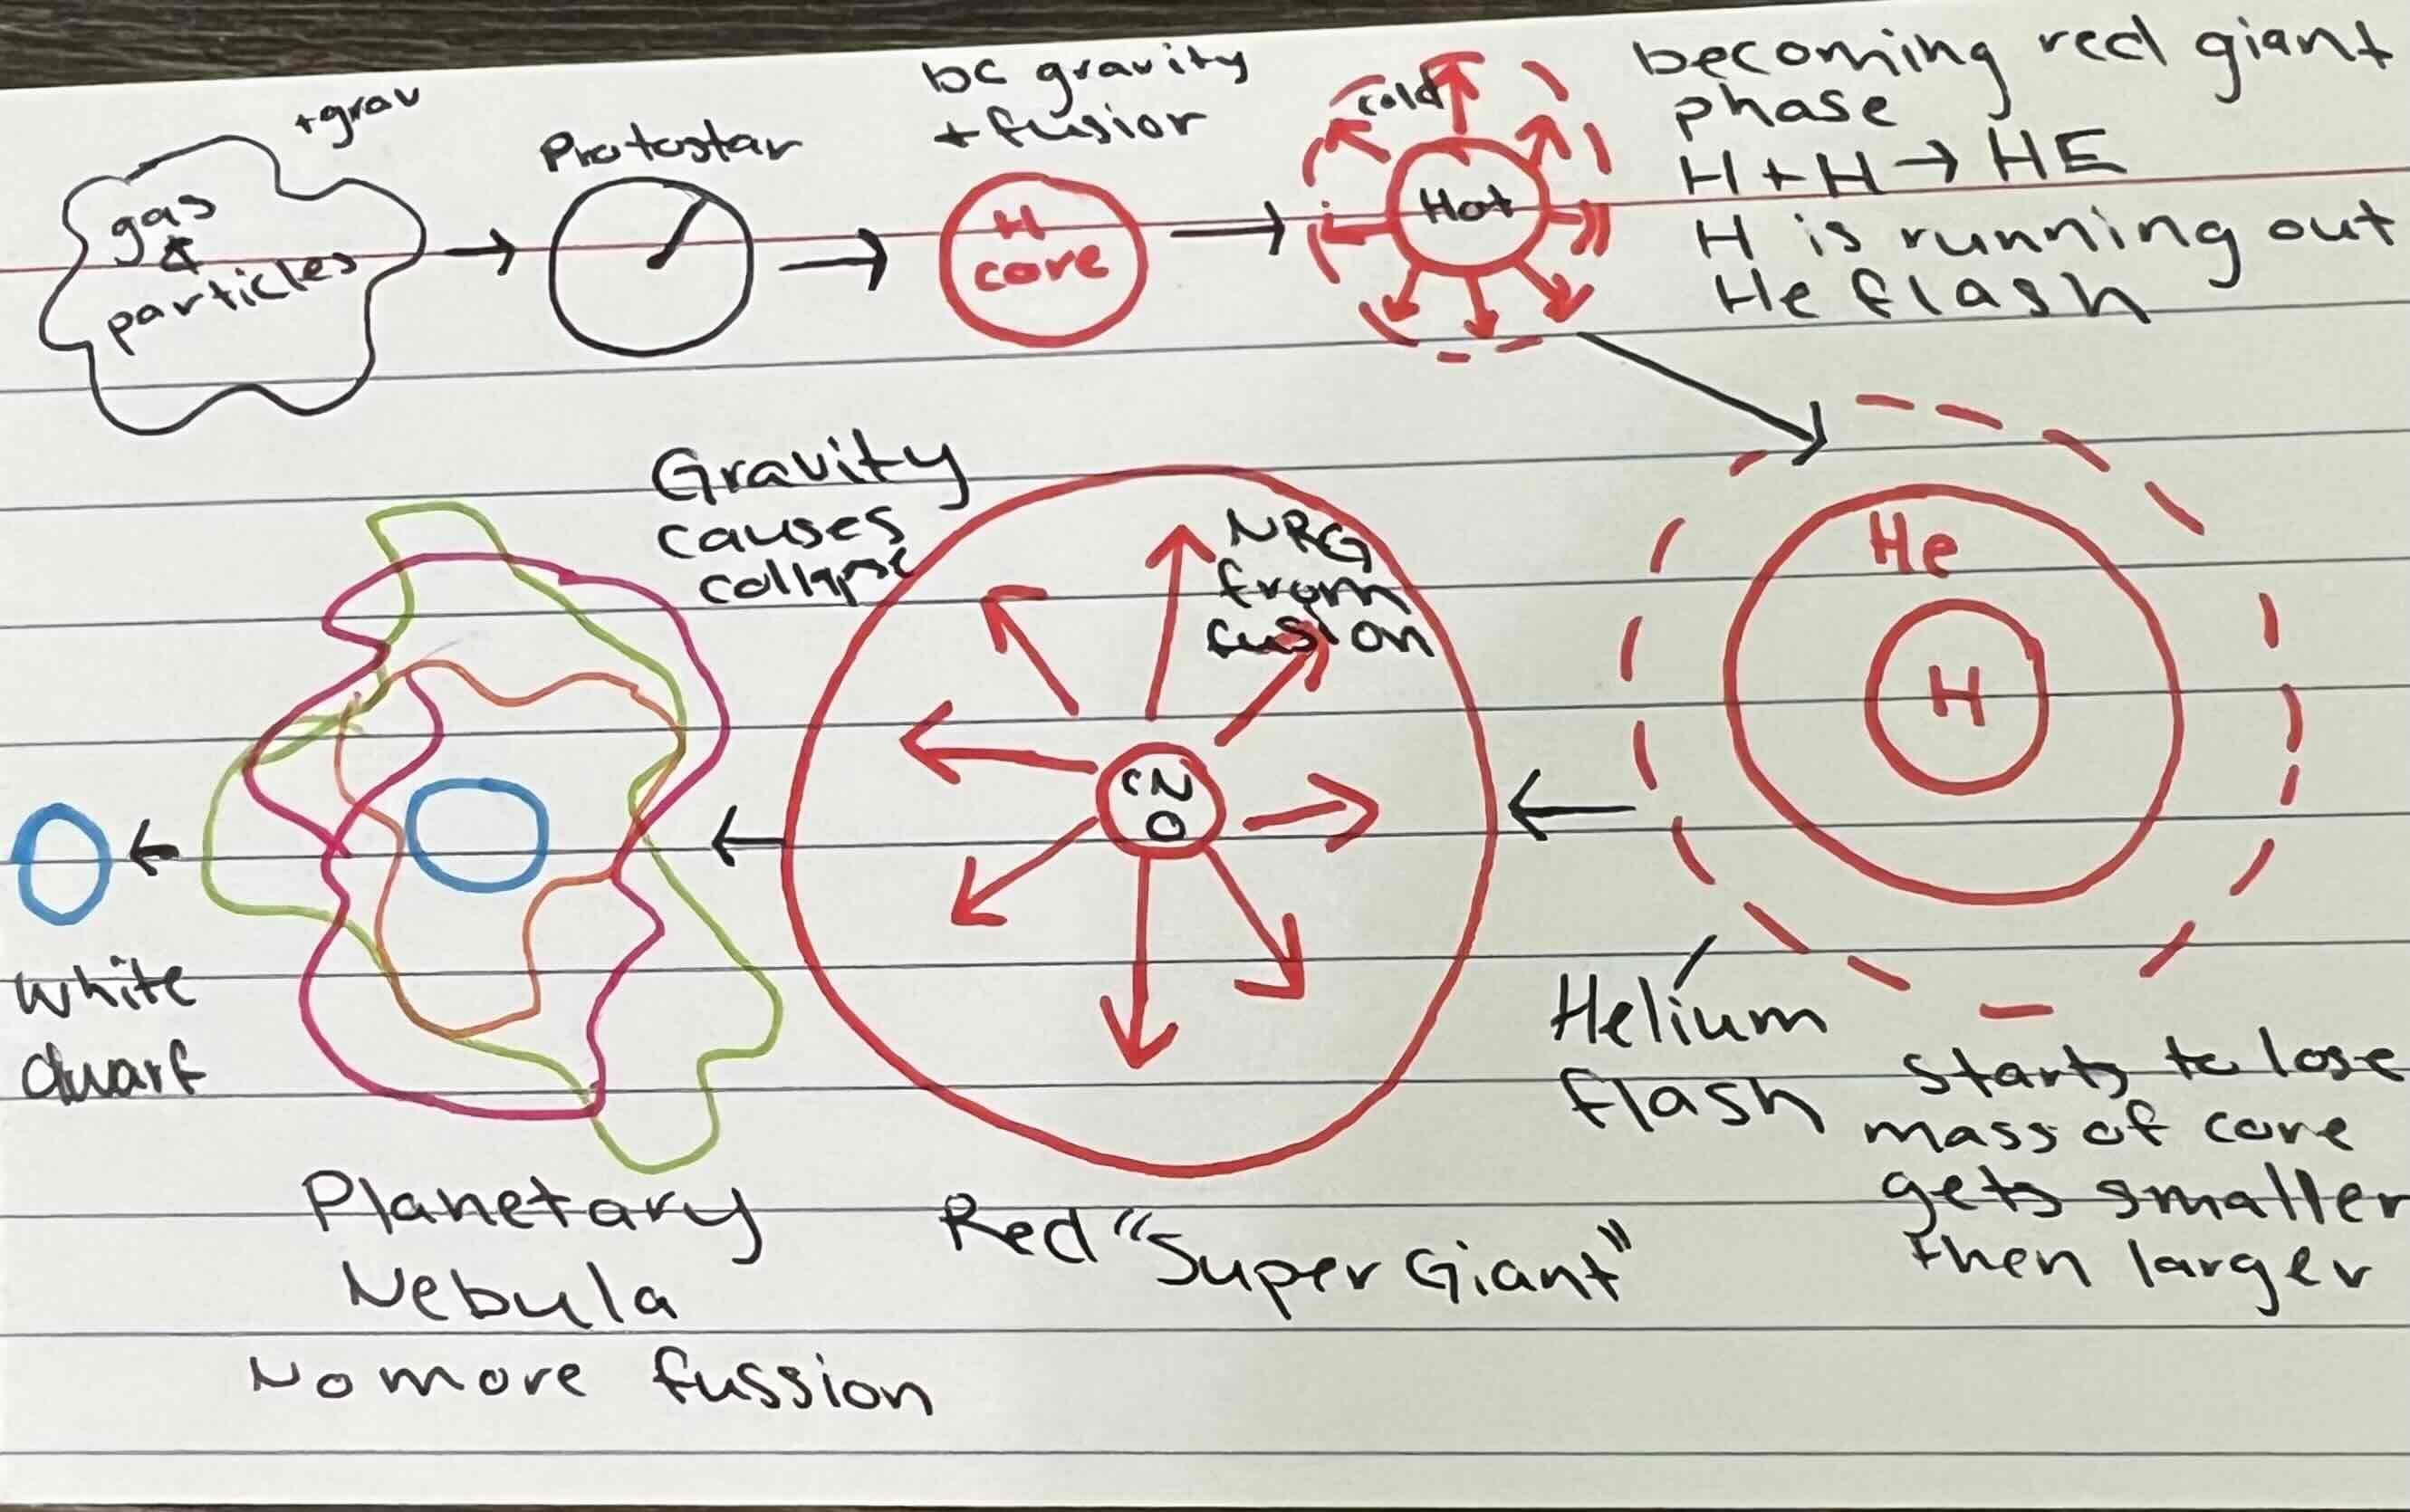 +grav
gas
&
particles
Protostar
bc gravity
+ fusior
H
core
cold
Hot
becoming red giant
phase
H + H → HE
H is running out
He flash
He
H
Helium
flash
starts to lose
mass of core
gets smaller
then larger
NRG
from
fusion
CN
O
Red "Super Giant"
Gravity
causes
collapse
Planetary
Nebula
No more fussion
white
dwarf